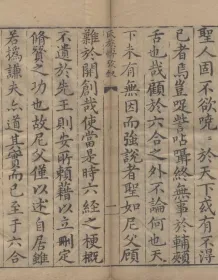 聖人固不欲曉〻於天下或有不得
已者焉豈哫訾呫囁終無事於輔頰
舌也哉顧於六合之外不論何也天
下未有無因而強說者聖如尼父顧
難於開創哉使當是時六經之梗概
不遺於先王則安所賴藉以立刪定
脩贊之功也故尼父僅以述自居雖
若撝謙夫亦道其實而已至于六合